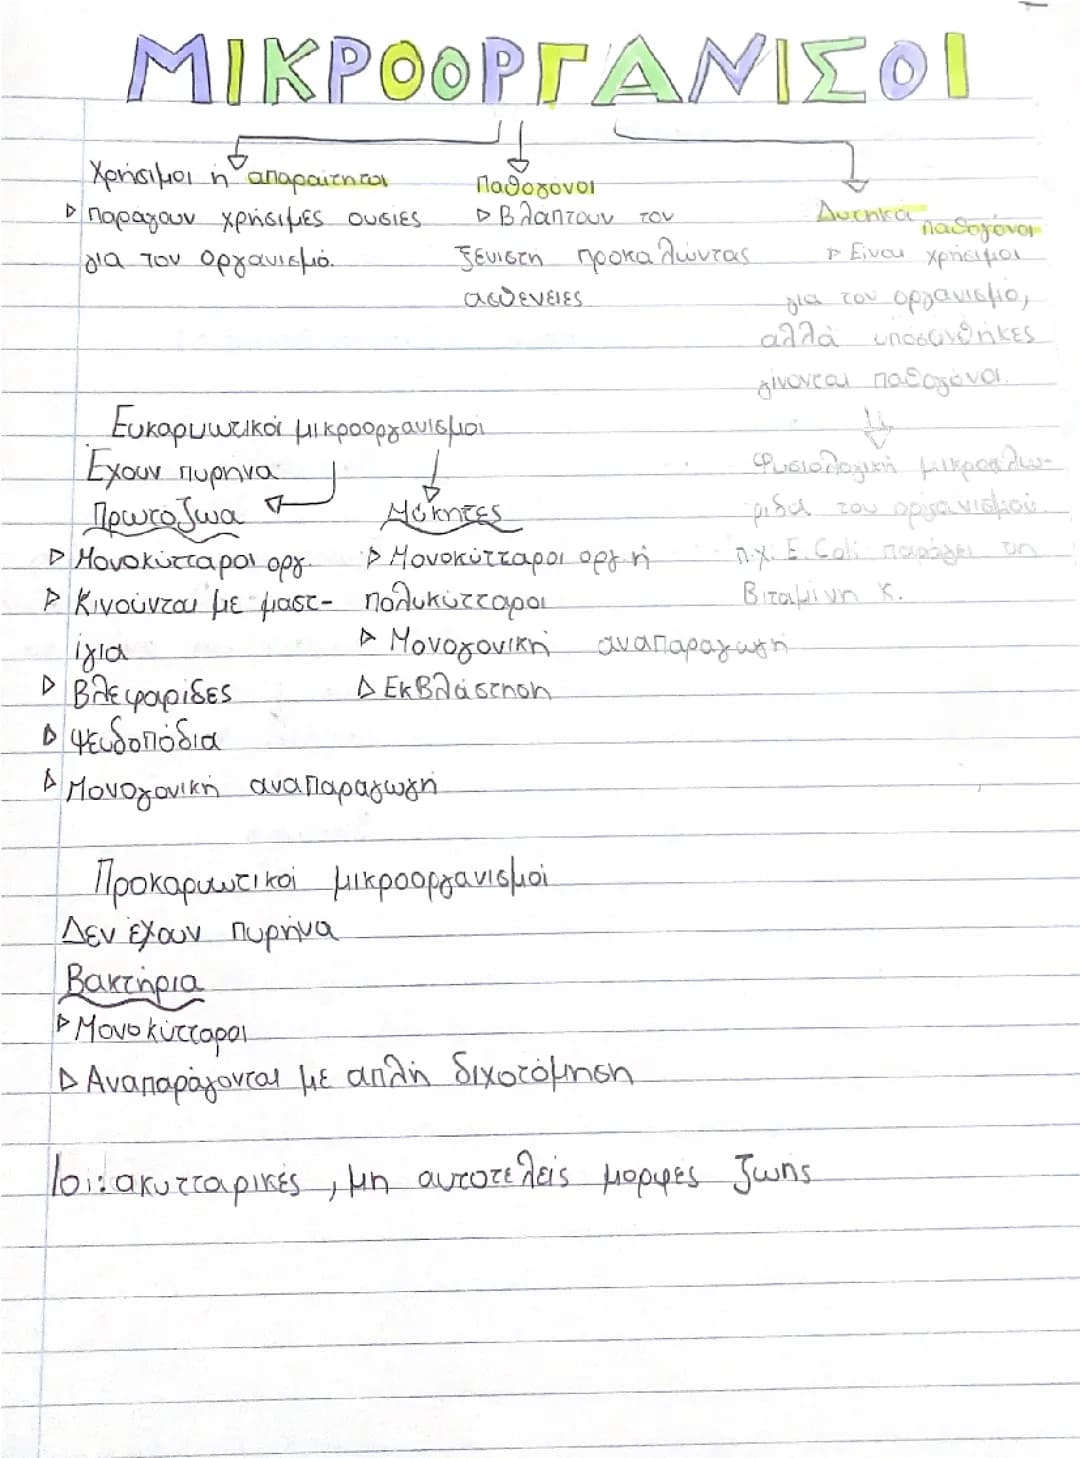 ΜΙΚΡΟΟΡΓΑΝΙΣΟΙ
Χρήσιμοι ή απαραίτητοι
▷ Παράγουν χρήσιμες ουσιές
για τον οργανισμό.
Παθογόνοι
▷ Βλάπτουν τον
ξενιστή προκαλώντας
ασθένειες
Δυτηκά παθογόνοι
▷ Είναι χρήσιμοι
για τον οργανισμό,
αλλά υποσυνθήκες
γίνονται παθογόνοι.
Φυσιολογική μικροχλω-
ριδα του οργανισμού
π.χ. E. Coli παράγει τη
Βιταμίνη Κ.
Ευκαρυωτικοί μικροοργανισμοί
Έχουν πυρήνα
Πρωτόζωα
▷ Μονοκύτταροι οργ.
▷ Κινούνται με μαστ-
ίγια
▷ Βλεφαρίδες
▷ Ψευδοπόδια
▷ Μονογονική αναπαραγωγή
Μύκητες
▷ Μονοκύτταροι οργ ή
πολυκύτταροι
▷ Μονογονική αναπαραγωγή
▷ Εκβλάστηση
Προκαρυωτικοί μικροοργανισμοί
Δεν έχουν πυρήνα
Βακτήρια
▷ Μονοκύτταροι
▷ Αναπαράγονται με απλή διχοτόμηση
Ιοι: ακυτταρικές, μη αυτοτελείς μορφές ζωής